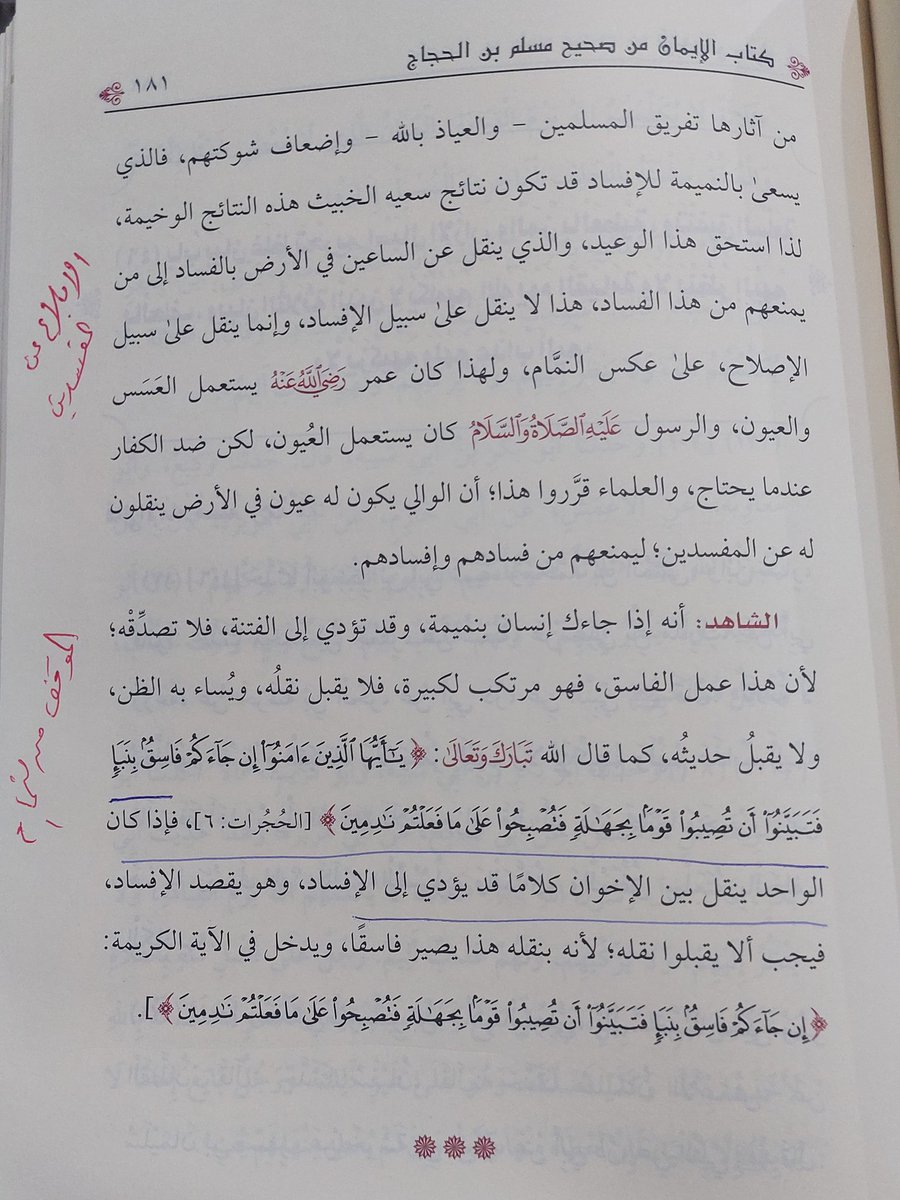 كتاب الإيمان من صحيح مسلم بن الحجاج
١٨١
من آثارها تفريق المسلمين - والعياذ بالله - وإضعاف شوكتهم، فالذي
يسعىٰ بالنميمة للإفساد قد تكون نتائج سعيه الخبيث هذه النتائج الوخيمة،
لذا استحق هذا الوعيد، والذي ينقل عن الساعين في الأرض بالفساد إلى من
يمنعهم من هذا الفساد، هذا لا ينقل علىٰ سبيل الإفساد، وإنما ينقل علىٰ سبيل
الإصلاح، علىٰ عكس النمَّام، ولهذا كان عمر رَضِيَ اللَّهُ عَنْهُ يستعمل العَسَس
والعيون، والرسول عَلَيْهِ الصَّلَاةُ وَالسَّلَامُ كان يستعمل العُيون، لكن ضد الكفار
عندما يحتاج، والعلماء قرَّروا هذا؛ أن الوالي يكون له عيون في الأرض ينقلون
له عن المفسدين؛ ليمنعهم من فسادهم وإفسادهم.
الشاهد: أنه إذا جاءك إنسان بنميمة، وقد تؤدي إلى الفتنة، فلا تصدِّقْه؛
لأن هذا عمل الفاسق، فهو مرتكب لكبيرة، فلا يقبل نقلُه، ويُساء به الظن،
ولا يقبلُ حديثُه، كما قال الله تَبَارَكَ وَتَعَالَىٰ: ﴿يَٰٓأَيُّهَا ٱلَّذِينَ ءَامَنُوٓاْ إِن جَآءَكُمْ فَاسِقٌۢ بِنَبَإٖ
فَتَبَيَّنُوٓاْ أَن تُصِيبُواْ قَوْمَۢا بِجَهَٰلَةٖ فَتُصْبِحُواْ عَلَىٰ مَا فَعَلْتُمْ نَٰدِمِينَ﴾ [الحُجُرات: ٦]، فإذا كان
الواحد ينقل بين الإخوان كلامًا قد يؤدي إلى الإفساد، وهو يقصد الإفساد،
فيجب ألا يقبلوا نقله؛ لأنه بنقله هذا يصير فاسقًا، ويدخل في الآية الكريمة:
﴿إِن جَآءَكُمْ فَاسِقٌۢ بِنَبَإٖ فَتَبَيَّنُوٓاْ أَن تُصِيبُواْ قَوْمَۢا بِجَهَٰلَةٖ فَتُصْبِحُواْ عَلَىٰ مَا فَعَلْتُمْ نَٰدِمِينَ﴾].
الإبلاغ عن
المفسدين
الموقف من